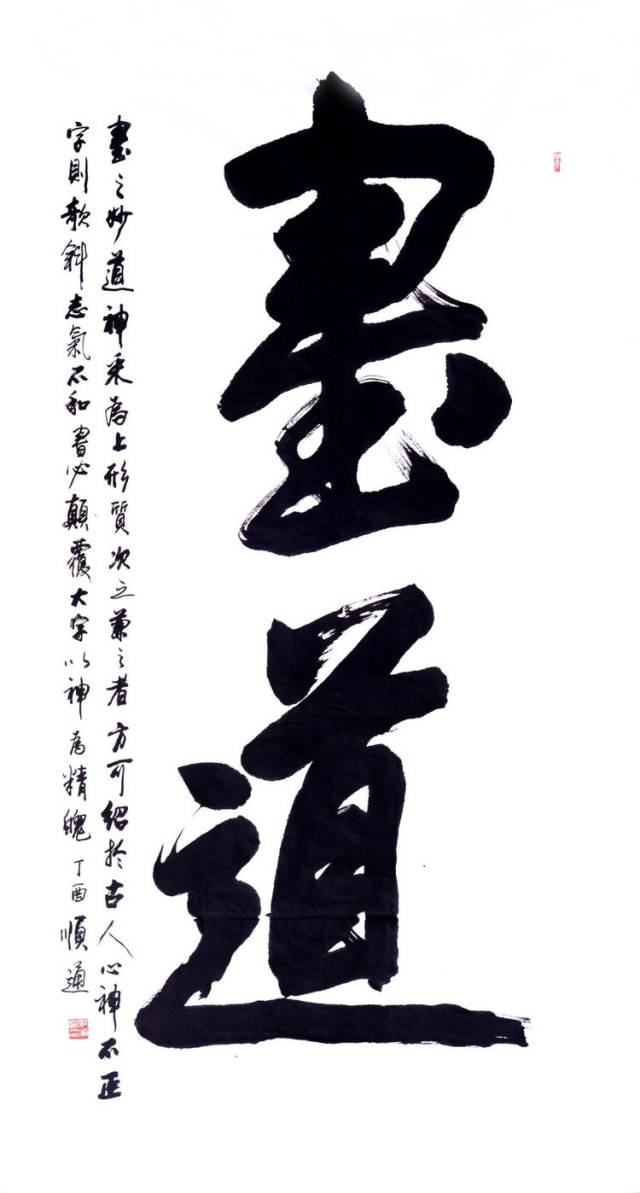 書道
書之妙道神采為上形質次之兼之者方可紹於古人心神不正
字則欹斜志氣不和書必顛覆大字以神為精魄丁酉順通